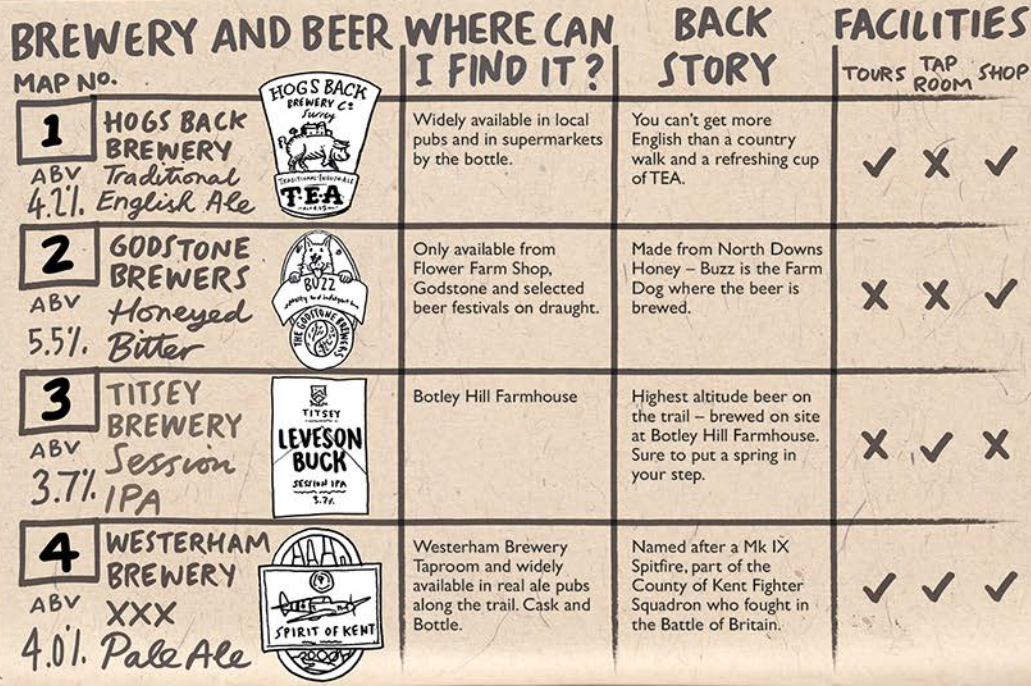 BREWERY AND BEER
WHERE CAN
I FIND IT?
BACK
STORY
FACILITIES
MAP NO.
TOURS
TAP
ROOM
SHOP
1
HOGS BACK
BREWERY
ABV
4.2%
Traditional
English Ale
HOGS BACK
BREWERY Co
Surrey
TRADITIONAL ENGLISH ALE
TEA
Widely available in local
pubs and in supermarkets
by the bottle.
You can't get more
English than a country
walk and a refreshing cup
of TEA.
✓ X ✓
2
GODSTONE
BREWERS
ABV
5.5%
Honeyed
Bitter
BUZZ
THE GODSTONE BREWERS
Only available from
Flower Farm Shop,
Godstone and selected
beer festivals on draught.
Made from North Downs
Honey – Buzz is the Farm
Dog where the beer is
brewed.
X X ✓
3
TITSEY
BREWERY
ABV
3.7%
Session
IPA
TITSEY
LEVESON
BUCK
SESSION IPA
3.7%
Botley Hill Farmhouse
Highest altitude beer on
the trail – brewed on site
at Botley Hill Farmhouse.
Sure to put a spring in
your step.
X ✓ X
4
WESTERHAM
BREWERY
ABV
4.0%
XXX
Pale Ale
SPIRIT OF KENT
Westerham Brewery
Taproom and widely
available in real ale pubs
along the trail. Cask and
Bottle.
Named after a Mk IX
Spitfire, part of the
County of Kent Fighter
Squadron who fought in
the Battle of Britain.
✓ ✓ ✓